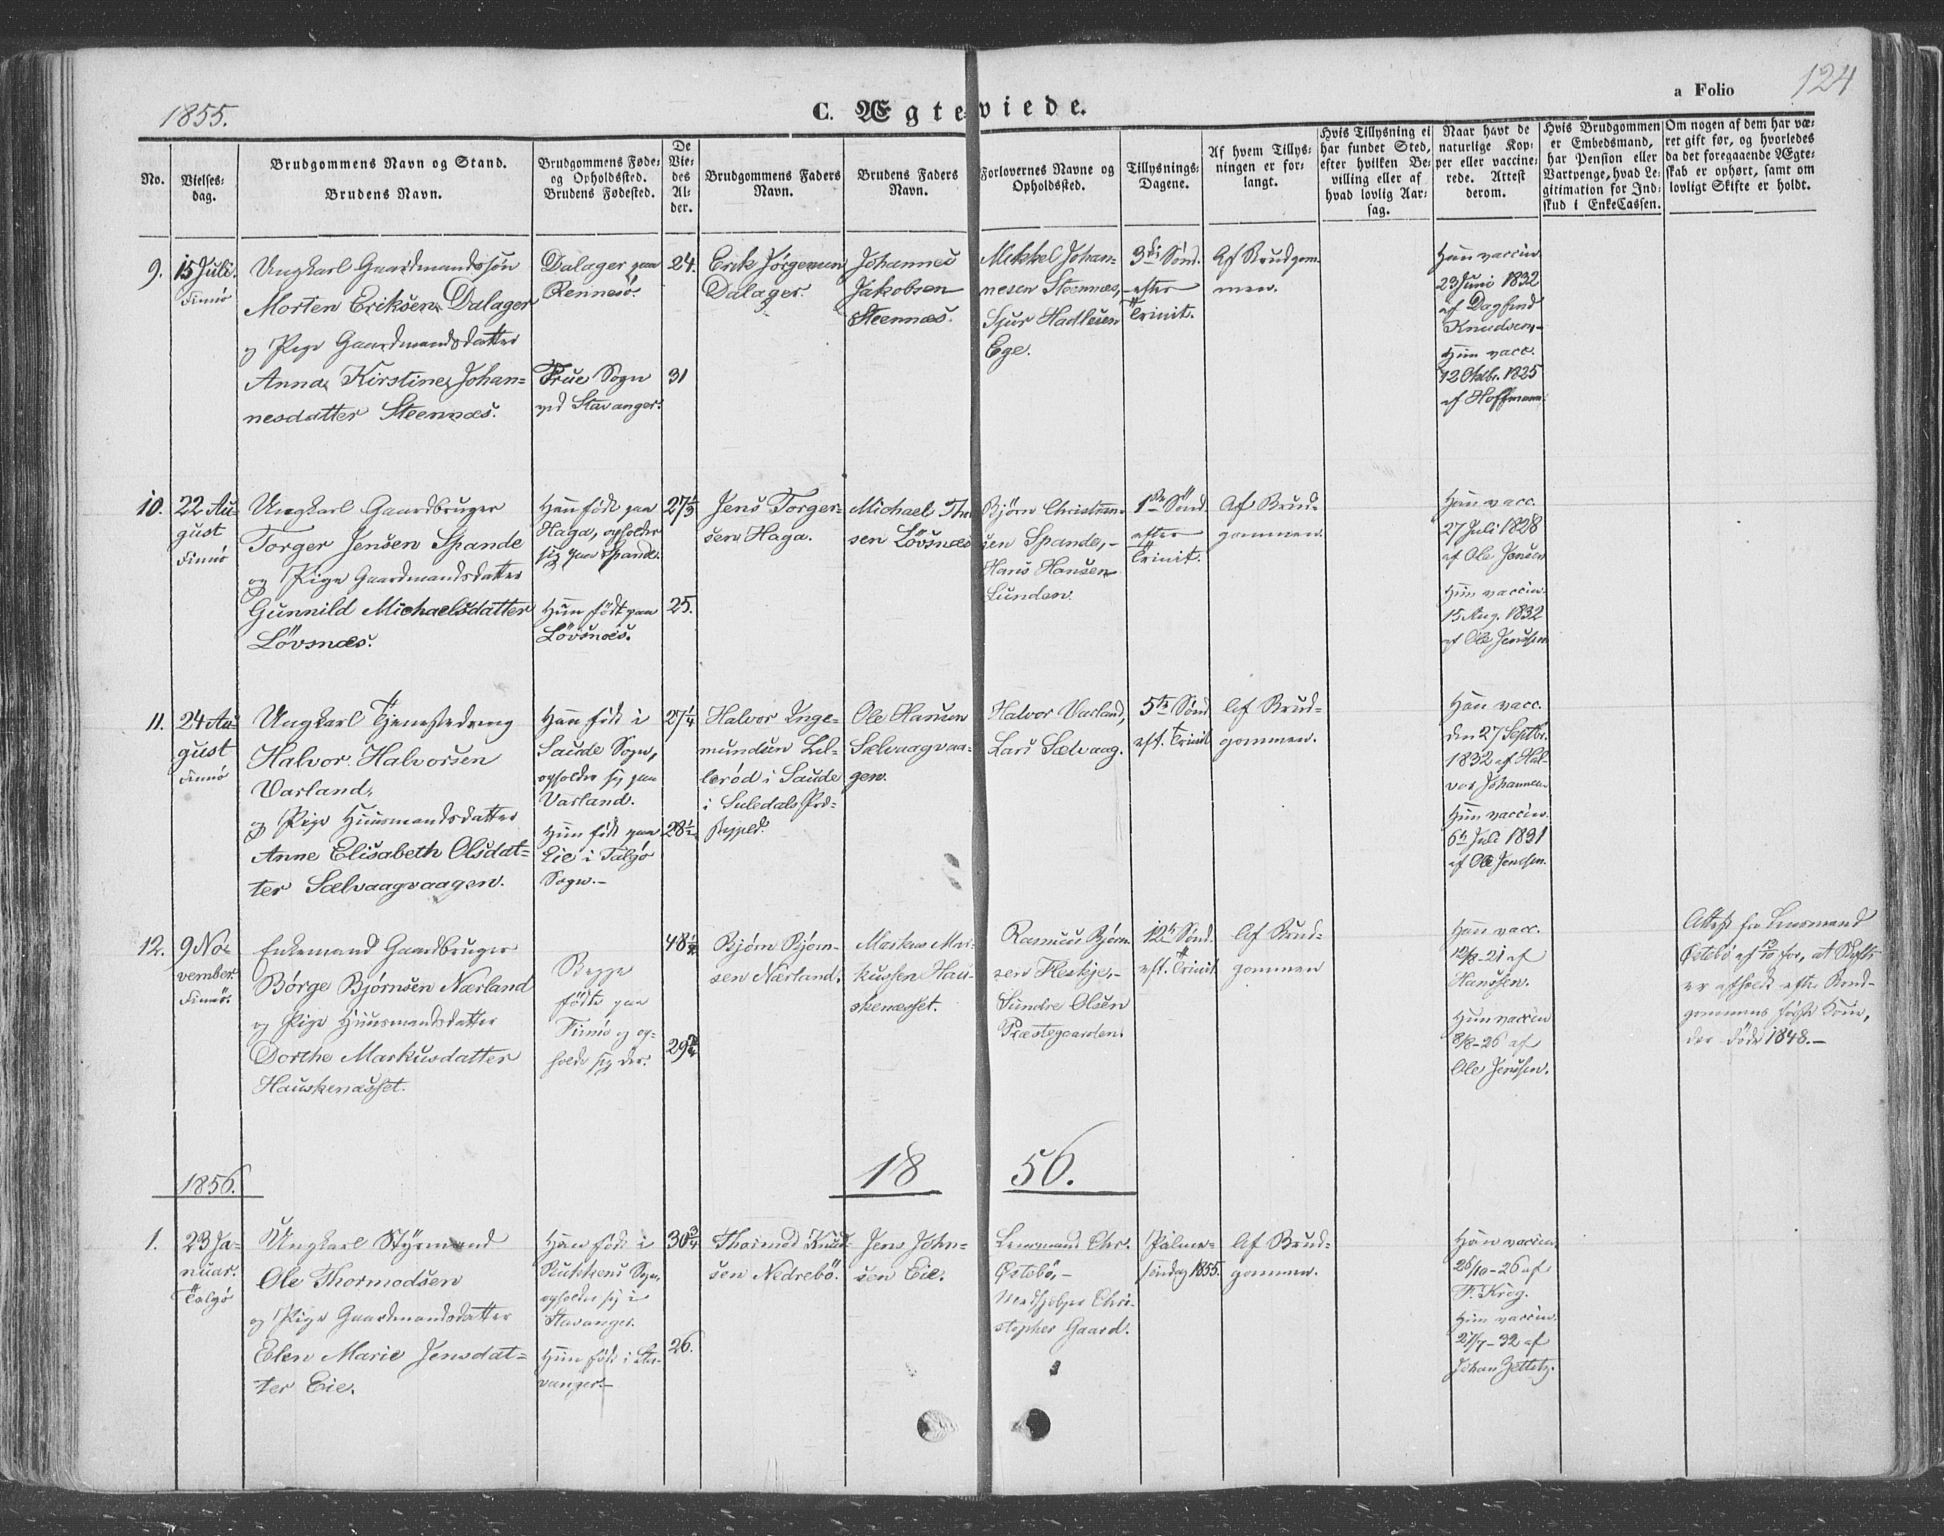 1855.
C. Ægteviede.
a Folio
124
No.
Vielses-
dag.
Brudgommens Navn og Stand.
Brudens Navn.
Brudgommens Føde-
og Opholdssted.
Brudens Fødested.
De
Vie-
des
Al-
der.
Brudgommens Faders
Navn.
Brudens Faders
Navn.
Forlovernes Navne og
Opholdssted.
Tillysnings-
Dagene.
Af hvem Tillys-
ningen er for-
langt.
Hvis Tillysning ei
har fundet Sted,
efter hvilken Be-
villing eller af
hvad lovlig Aar-
sag.
Naar havt de
naturlige Kop-
per eller vaccine-
rede. Attest
derom.
Hvis Brudgommen
er Embedsmand,
har Pension eller
Vartpenge, hvad Le-
gitimation for Ind-
skud i EnkeCassen.
Om nogen af dem har væ-
ret gift før, og hvorledes
da det foregaaende Ægte-
skab er ophørt, samt om
lovligt Skifte er holdt.
9.
15 Juli.
Finnø
Ungkarl Gaardmandssøn
Morten Eriksen Dalager
og Pige Gaardmandsdatter
Anna Kirstine Johan-
nesdatter Steennæs.
Dalager paa
Rennesø.
Frue Sogn
ved Stavanger.
24.
31
Erik Jørgensen
Dalager.
Johannes
Jakobsen
Steennæs.
Mikkel Johan-
nesen Steennæs,
Sjur Hadlesen
Ege.
3die Sønd.
efter
Trinit.
Af Brudgom-
men.
Han vaccin.
23 Juni 1832
af Dagfind
Knudsen
Hun vacc.
12 Oktbr. 1825
af Hoffmann.
10.
22 Au-
gust
Finnø
Ungkarl Gaardbruger
Torger Jensen Spande
og Pige Gaardmandsdatter
Gunnild Michaelsdatter
Løvsnæs.
Han født paa
Haga, opholder
sig paa Spande.
Hun født paa
Løvsnæs.
27 1/3
25.
Jens Torger-
sen Haga.
Michael
sen Løvsnæs
Bjørn Christian-
sen Spande,-
Hans Hansen
Lunden.
1ste Sønd.
efter
Trinit.
Af Brud-
gommen.
Han vacc.
27 Juli 1828
af Ole Jensen
Hun vaccin.
15 Aug. 1832
af Ole Jenssen
11.
24 Au-
gust
Finnø
Ungkarl Tjenestedreng
Halvor Halvorsen
Varland,
og Pige Huusmandsdatter
Anne Elisabeth Olsdat-
ter Sælvaagvaagen.
Han født i
Saude Sogn,
opholder sig paa
Varland.
Hun født paa
Eie i Talgø
Sogn.-
27 1/4
28 1/2
Halvor Inge-
mundsen Lil-
lerød i Saude
i Suledals Præ-
stegjeld.
Ole Hansen
Sælvaagvaa-
gen.
Halvor Varland,
Lars Sælvaag.
5te Sønd
eft. Trinit
Af Brud-
gommen.
Han vacc.
den 27 Septbr.
1832 af Hal-
vor Johannesen
Hun vaccin.
6te Juli 1831
af Ole Jensen.
12.
9 No-
vember
Finnø.
Enkemand Gaardbruger
Børge Bjørnsen Nærland
og Pige Huusmandsdatter
Dorthe Markusdatter
Hauskenæsset.
Begge
fødte paa
Finnø og op-
holde sig der.
48 1/4
29
Bjørn Bjørn-
sen Nærland.
Markus Mar-
kussen Hau-
skenæsset.
Rasmus Bjørn-
sen Fleskje,-
Sundre Olsen
Præstegaarden.
12te Sønd.
eft. Trinit
Af Brud-
gommen
Han vacc.
12/8-21 af
Hanssen.
Hun vaccin
8/8-26 af
Ole Jenssen.
Attest fra Lensmand
Østebø af for, at Skifte
er afholdt efter Brud-
gommens første Kone,
der døde 1848.-
1856.
18 56.
1.
23 Ja-
nuar.
Talgø
Ungkarl Styrmand
Ole Thormodsen
og Pige Gaardmandsdatter
Elen Marie Jensdat-
ter Eie.
Han født i
Sogn,
opholder sig i
Stavanger.
Hun født i Sta-
vanger.-
30 3/4
26.
Thormod Knud-
sen Nedrebø.
Jens John-
sen Eie.
Lensmand Chr.
Østebø,-
Medhjelper Chri-
stopher Gaard.
Palme-
søndag 1855.
Af Brud-
gommen.
Han vaccin.
26/10-26 af
F. Krog.
Hun vaccin.
27/7-32 af
Johan Zetlitz.